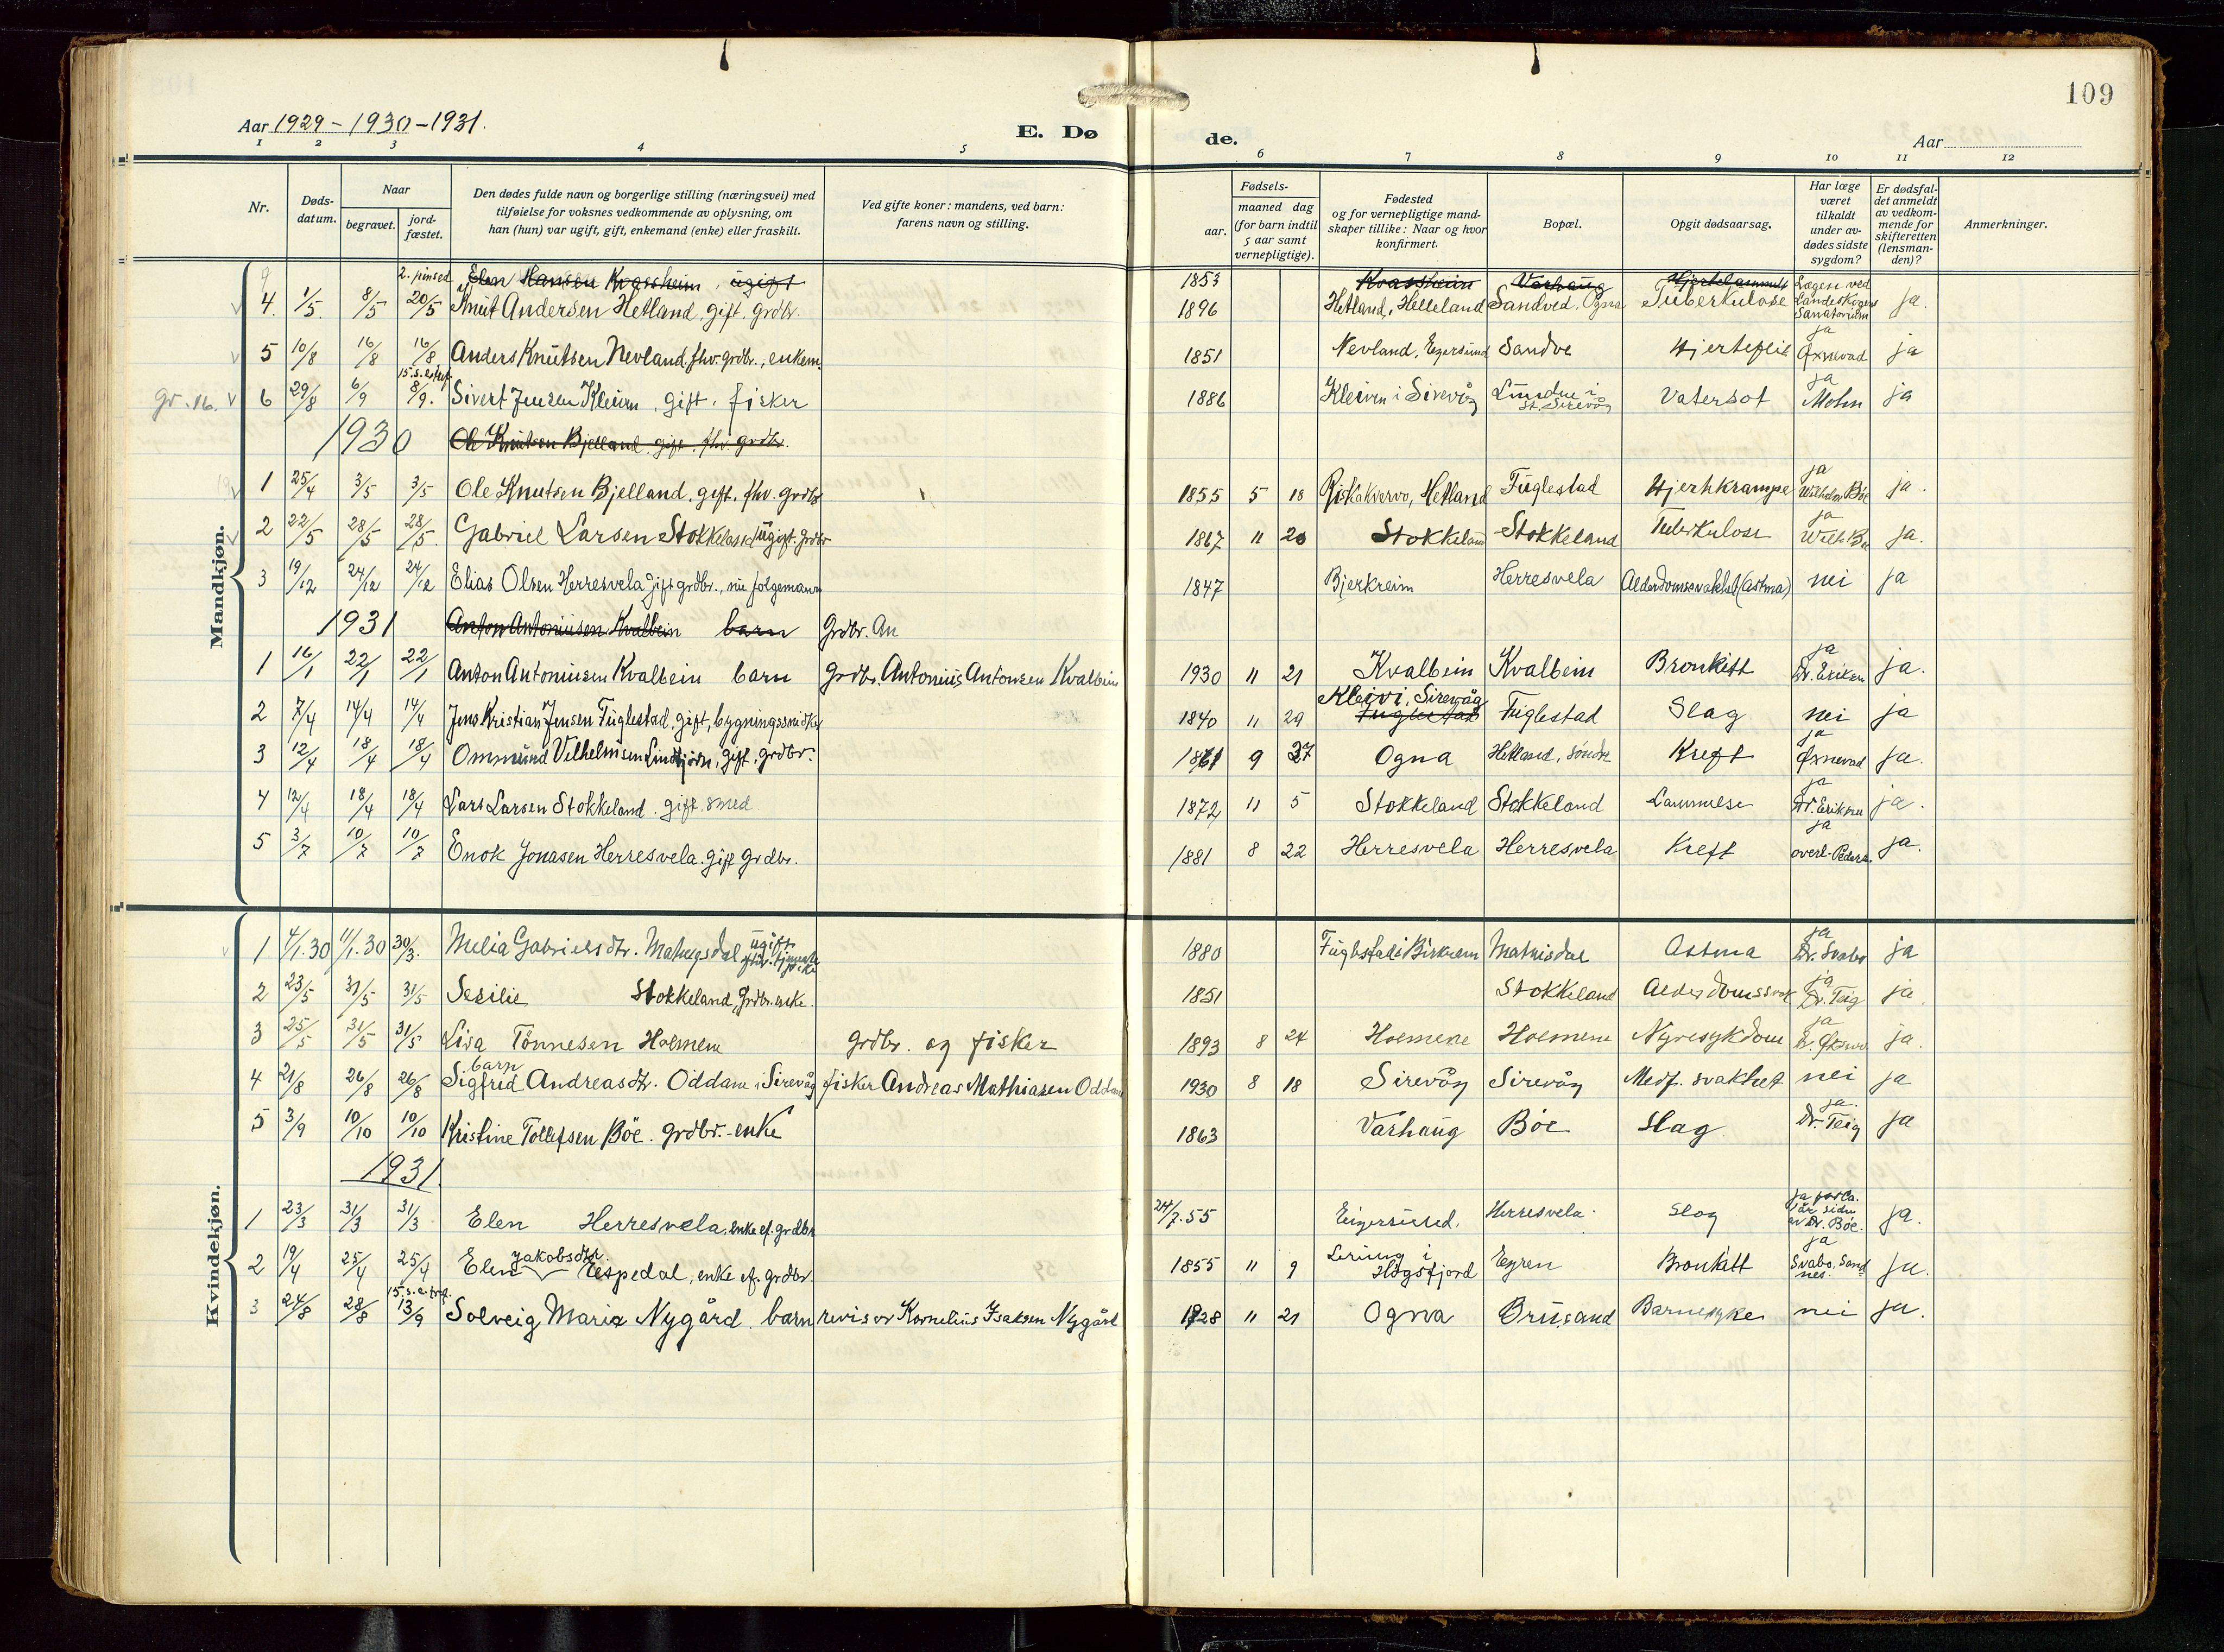 109
Aar 1929 - 1930 - 1931.
E. Dø de.
Aar
1 2 3 4 5 6 7 8 9 10 11 12
Nr. Døds-datum. Naar begravet. jord-fæstet. Den dødes fulde navn og borgerlige stilling (næringsvei) med tilføielse for voksnes vedkommende av oplysning, om han (hun) var ugift, gift, enkemand (enke) eller fraskilt. Ved gifte koner: mandens, ved barn: farens navn og stilling. Fødsels- aar. maaned dag (for barn indtil 5 aar samt vernepligtige). Fødested og for vernepligtige mandskaper tillike: Naar og hvor konfirmert. Bopæl. Opgit dødsaarsag. Har læge været tilkaldt under av-dødes sidste sygdom? Er dødsfal-det anmeldt av vedkom-mende for skifteretten (lensman-den)? Anmerkninger.
Mandkjøn.
Elen Hansen Kvassheim, ugift 1853 Kvassheim Varhaug Hjertelammelse
4. 1/5. 8/5 2. pinsed. 20/5 Knut Andersen Hetland, gift, grdbr. 1896 Hetland, Helleland Sandved, Ogna Tuberkulose Lægen ved Landeskogens Sanatorium ja.
5 10/8 16/8 16/8 Anders Knutsen Nevland, fhv. grdbr., enkem. 1851 Nevland, Egersund Sandve Hjertefeil ja Øxnevad ja
gr. 16. 6 29/8 6/9 15. s. e. tref. 8/9. Sivert Jensen Kleiven, gift. fisker 1886 Kleiven i Sirevåg Linden i St. Sirevåg Vatersot ja Mohn ja
1930 Ole Knutsen Bjelland, gift, fhv. grdbr.
1 25/4 3/5 3/5 Ole Knutsen Bjelland, gift, fhv. grdbr 1855 5 18 Hetland Fuglestad Hjertekrampe ja Wilhelm Bøe ja.
2 22/5 28/5 28/5. Gabriel Larsen Stokkeland ugift. grdbr 1867 11 20 Stokkeland Stokkeland Tuberkulose ja Wilh. Bøe ja.
3 19/12 24/12 24/12 Elias Olsen Herresvela gift grdbr., nu følgemann 1847 Bjerkreim Herresvela Alderdomssvakhet (astma) nei ja
1931 Anton Antoniusen Kvalbein barn Grdbr. An
1 16/1 22/1 22/1 Anton Antoniusen Kvalbein barn Grdbr. Antonius Antonsen Kvalbein 1930 11 21 Kvalbein Kvalbein Bronkitt ja Dr. Eriksen ja.
2 7/4 14/4 14/4 Jens Kristian Jensen Fuglestad, gift, bygningssnidker 1840 11 29 Kleivi, Sirevåg Fuglestad Fuglestad Slag nei ja
3 12/4 18/4 18/4 Ommund Vilhelmsen Lindtjørn, gift, grdbr. 1861 9 27 Ogna Hetland, søndre Kreft ja Øxnevad ja.
4 12/4 18/4 18/4 Lars Larsen Stokkeland. gift. smed 1872 11 5 Stokkeland Stokkeland Lammelse ja Dr. Eriksen ja.
5 3/7 10/7 10/7 Enok Jonasen Herresvela. gift grdbr. 1881 8 22 Herresvela Herresvela Kreft ja overl. Peders. ja.
Kvindekjøn.
1 4/1.30 11/1.30 30/3. Melia Gabrielsdtr. ugift fhv. tjenestepike 1880 Fuglestad i Birkrem Mathisdal Astma ja Dr. Svabo ja
2 23/5 31/5 31/5 Sesilie Stokkeland, grdbr. enke. 1851 Stokkeland Alderdomssvak ja Dr. Teig ja
3 25/5 31/5 31/5 Lisa Tönnesen Holmene grdbr. og fisker 1893 8 24 Holmene Holmene Nyresykdom ja Dr. Øxnev ja.
4 21/8 26/8 26/8 barn Sigfred Andreasdtr. Oddane i Sirevåg fisker Andreas Mathiasen Oddane 1930 8 18 Sirevåg Sirevåg Medf. svakhet nei ja
5 3/9 10/10 10/10 Kristine Tollefsen Böe. grdbr.-enke 1863 Varhaug Böe Slag ja. Dr. Teig ja
1931
1 23/3 31/3 31/3 Elen Herresvela, enke ef. grdbr 24/7.55 Eigersund. Herresvela. Slag ja for ca. 1 år siden av Dr. Böe. ja.
2 19/4 25/4 25/4 Elen Jakobsdtr. Espedal, enke ef. grdbr. 1855 11 9 i Høgsfjord Egren Bronkitt ja Svabo. Sandnes. ja.
3 24/8 28/8 15. s. e. tref. 13/9 Solveig Maria Nygård. barn revisor Kornelius Isaksen Nygård 1928 11 21 Ogna Brusand Barnesyke nei ja.